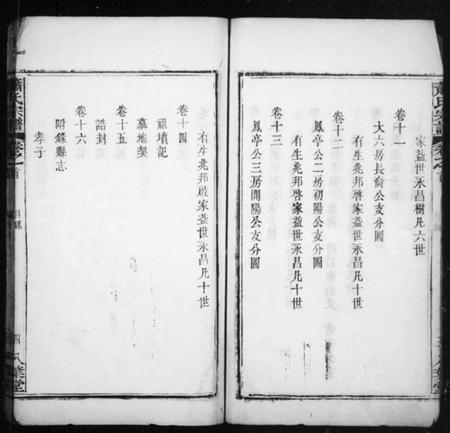 家益世永昌樹凡六世
卷十一
大六房長裔公支分圖
有生兆邦啓家益世永昌凡十世
卷十二
鳳亭公二房初陽公支分圖
有生兆邦啓家益世永昌凡十世
卷十三
鳳亭公三房開陽公支分圖
有生兆邦啟家益世永昌凡十世
卷十四
祖墳記
墓地契
卷十五
誥封
卷十六
附錄縣志
孝子
蕭氏宗譜
卷之首
目錄
四
八葉堂